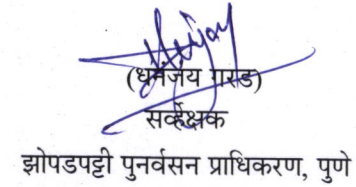 (धनंजय गरड)
सर्व्हेक्षक
झोपडपट्टी पुनर्वसन प्राधिकरण, पुणे